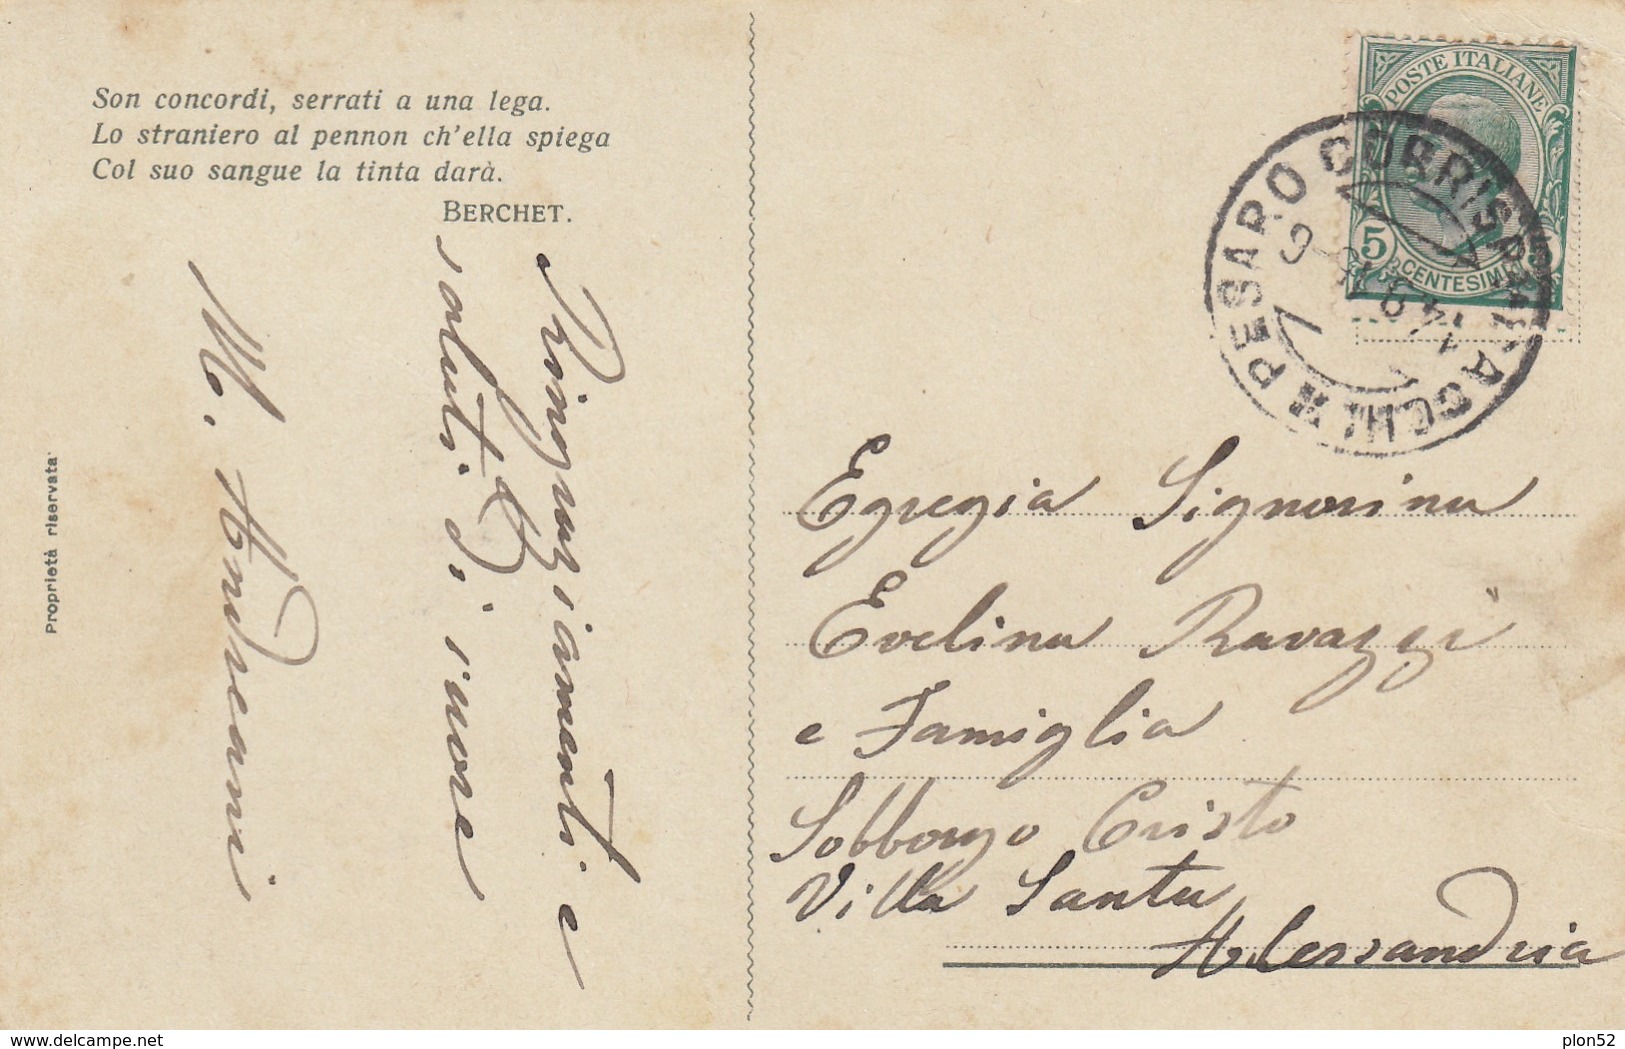 Son concordi, serrati a una lega.
Lo straniero al pennon ch'ella spiega
Col suo sangue la tinta darà.
BERCHET.
Ringraziamenti e
saluti di cuore
M. Andreani
Proprietà riservata
POSTE ITALIANE
5 CENTESIMI 5
PESARO CORRISP PACCHI
Egregia Signorina
Evelina Ravazzi
e Famiglia
Sobborgo Cristo
Villa Santa
Alessandria
www.delcampe.net
plon52